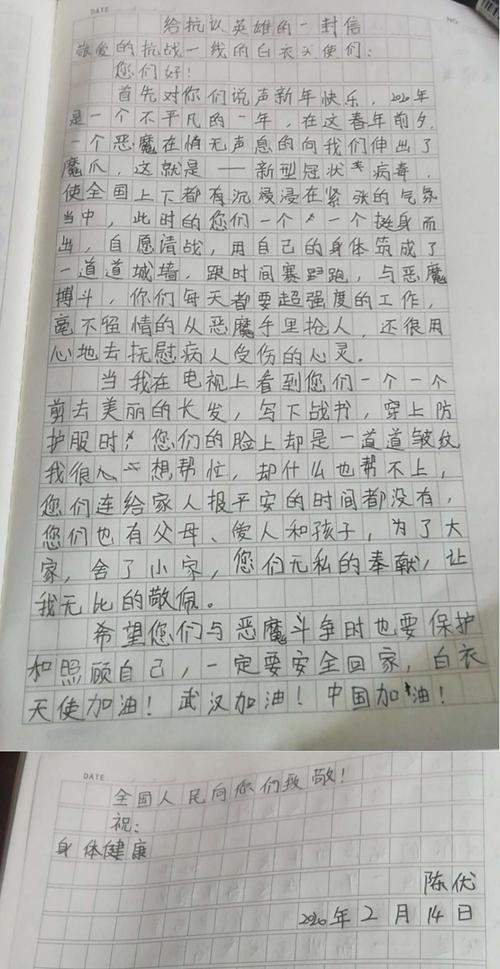 DATE
NO
给抗议英雄的一封信
敬爱的抗战一线的白衣天使们：
您们好！
首先对你们说声新年快乐，2020年
是一个不平凡的一年，在这春年前夕，
一个恶魔在悄无声息的向我们伸出了
魔爪，这就是——新型冠状病毒，
使全国上下都有沉浸浸在紧张的气氛
当中，此时的您们一个一个挺身而
出，自愿请战，用自己的身体筑成了
一道道城墙，跟时间赛跑，与恶魔
搏斗，你们每天都要超强度的工作，
毫不留情的从恶魔手里抢人，还很用
心地去抚慰病人受伤的心灵。
当我在电视上看到您们一个一个
剪去美丽的长发，写下战书，穿上防
护服时，您们的脸上却是一道道皱纹
我很心一想帮忙，却什么也帮不上，
您们连给家人报平安的时间都没有，
您们也有父母、爱人和孩子，为了大
家，舍了小家，您们无私的奉献，让
我无比的敬佩。
希望您们与恶魔斗争时也要保护
和照顾自己，一定要安全回家，白衣
天使加油！武汉加油！中国加油！
DATE
全国人民向你们致敬！
祝：
身体健康
陈优
2020年2月14日